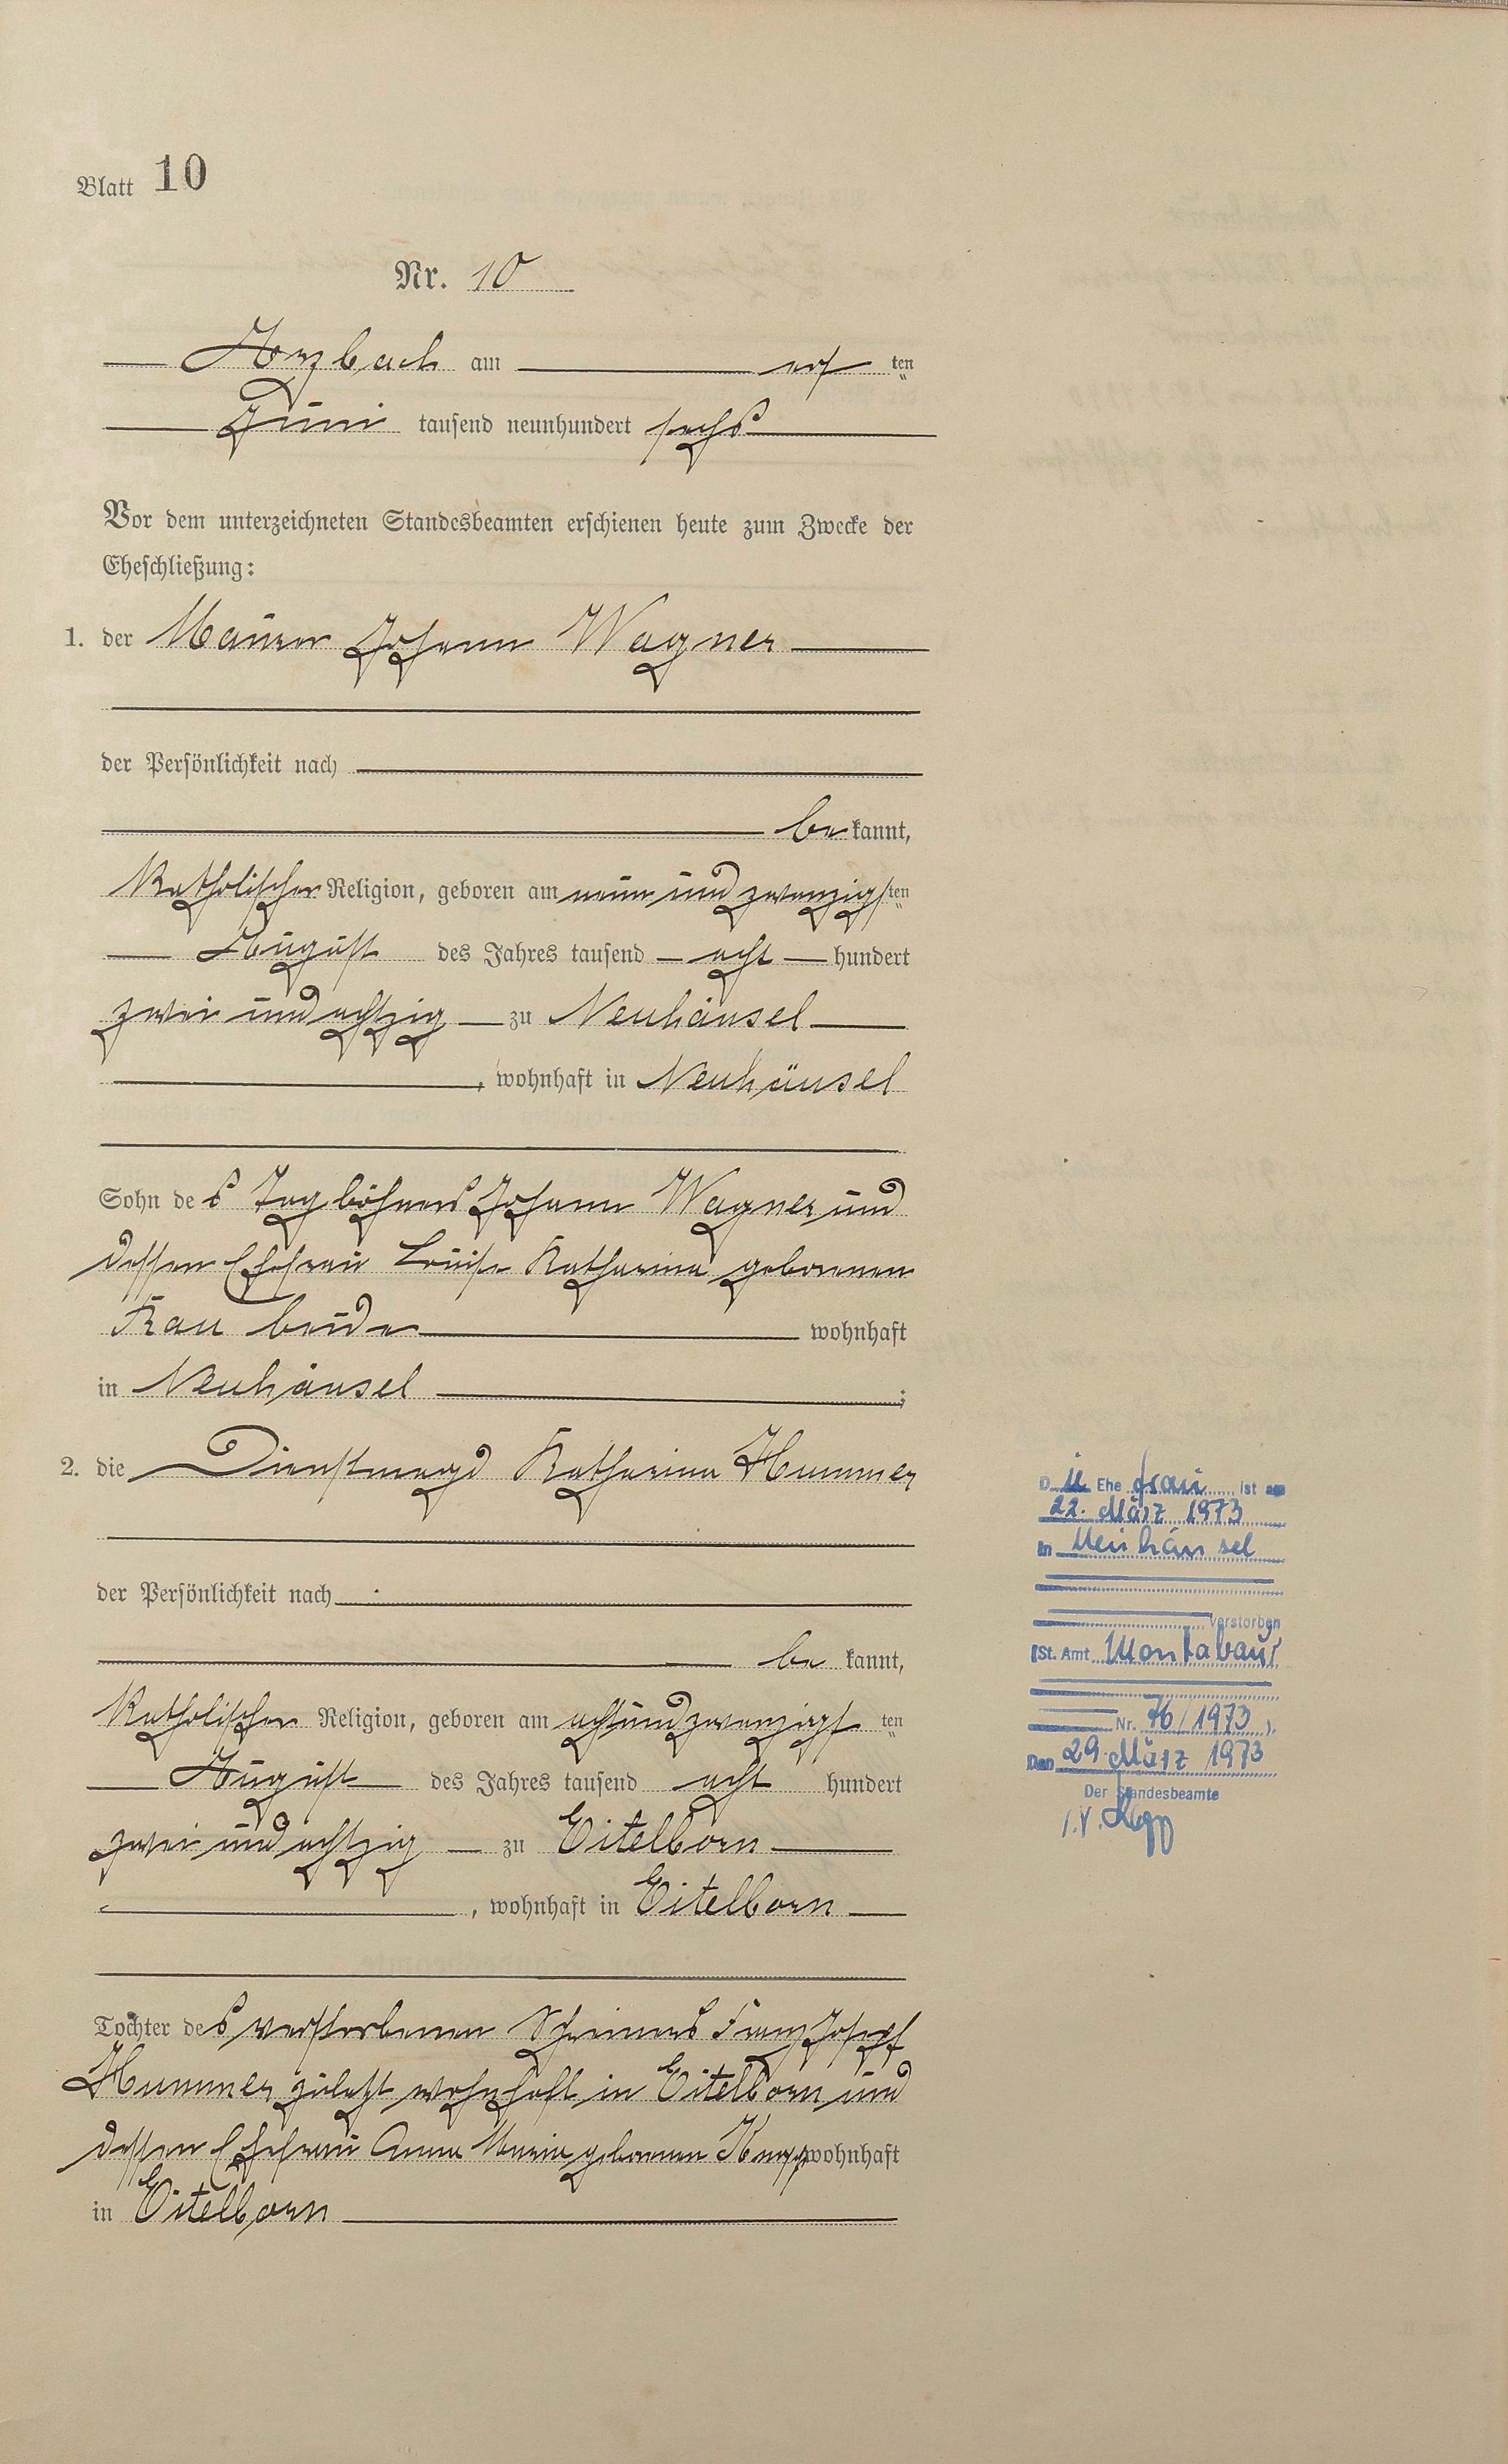 Blatt 10
Nr. 10
Arzbach am ten
Juni tausend neunhundert sechs
Vor dem unterzeichneten Standesbeamten erschienen heute zum Zwecke der
Eheschließung:
1. der Maurer Johann Wagner
der Persönlichkeit nach
bekannt,
Katholischer Religion, geboren am neun und zwanzigsten
August des Jahres tausend acht hundert
zwei und achtzig zu Neuhäusel
, wohnhaft in Neuhäusel
Sohn des Taglöhners Johann Wagner und
dessen Ehefrau Louise Katharina geborenen
Rau beide wohnhaft
in Neuhäusel ;
2. die Dienstmagd Katharina Hummer
der Persönlichkeit nach
be kannt,
Katholischer Religion, geboren am achtundzwanzigst ten
August des Jahres tausend acht hundert
zwei und achtzig zu Eitelborn
, wohnhaft in Eitelborn
Tochter des verstorbenen Schreiners Franz Josepf
Hummer zuletzt wohnhaft in Eitelborn und
dessen Ehefrau Anna Maria geborenen wohnhaft
in Eitelborn
Die Ehefrau ist am
22. März 1973
in Neuhäusel
verstorben
(St. Amt Montabaur
Nr. 76/1973).
Den 29. März 1973
Der Standesbeamte
I.V.